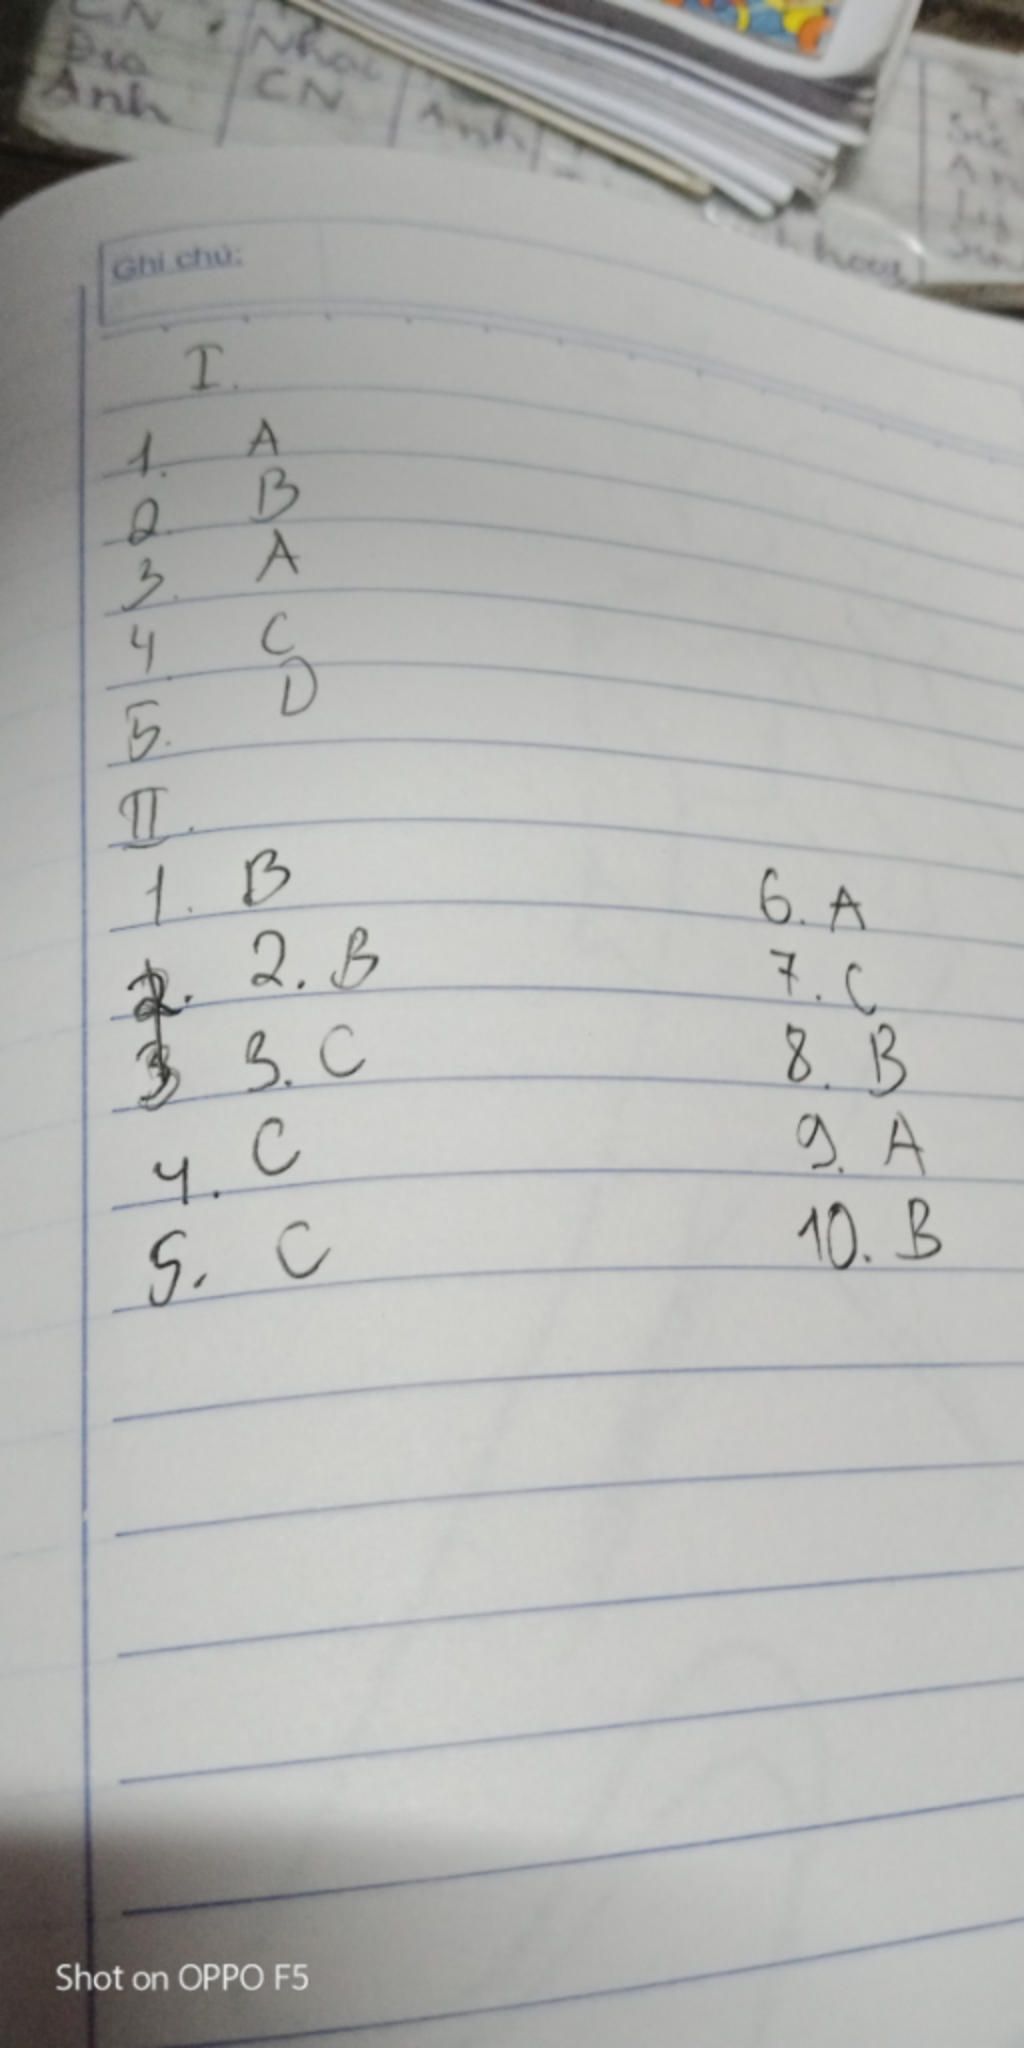 CN
Nhạc
Địa
CN
Anh
Anh
Ghi chú:
I.
1. A
2. B
3. A
4 C
5. D
II.
1. B
2. 2. B
3 3. C
4. C
5. C
6. A
7. C
8. B
9. A
10. B
Shot on OPPO F5